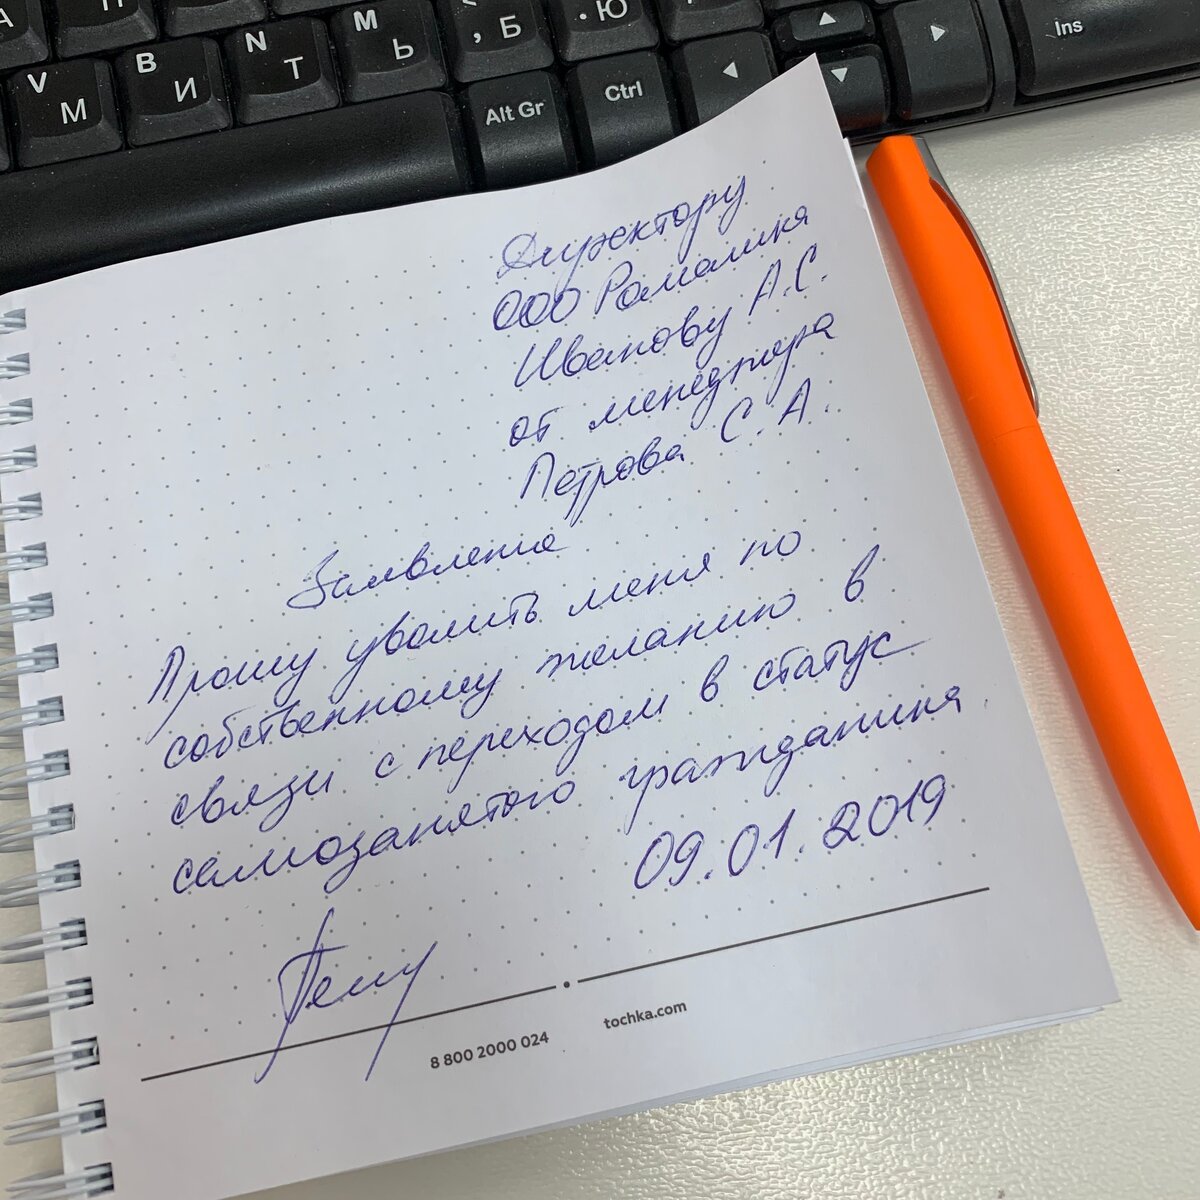 V М
B И
N Т
M Ь
, Б
. Ю
Alt Gr
Ctrl
Ins
Директору
ООО Ромашка
Иванову А.С.
от менеджера
Петрова С.А.
Заявление
Прошу уволить меня по
собственному желанию в
связи с переходом в статус
самозанятого гражданина.
09.01.2019
8 800 2000 024
tochka.com